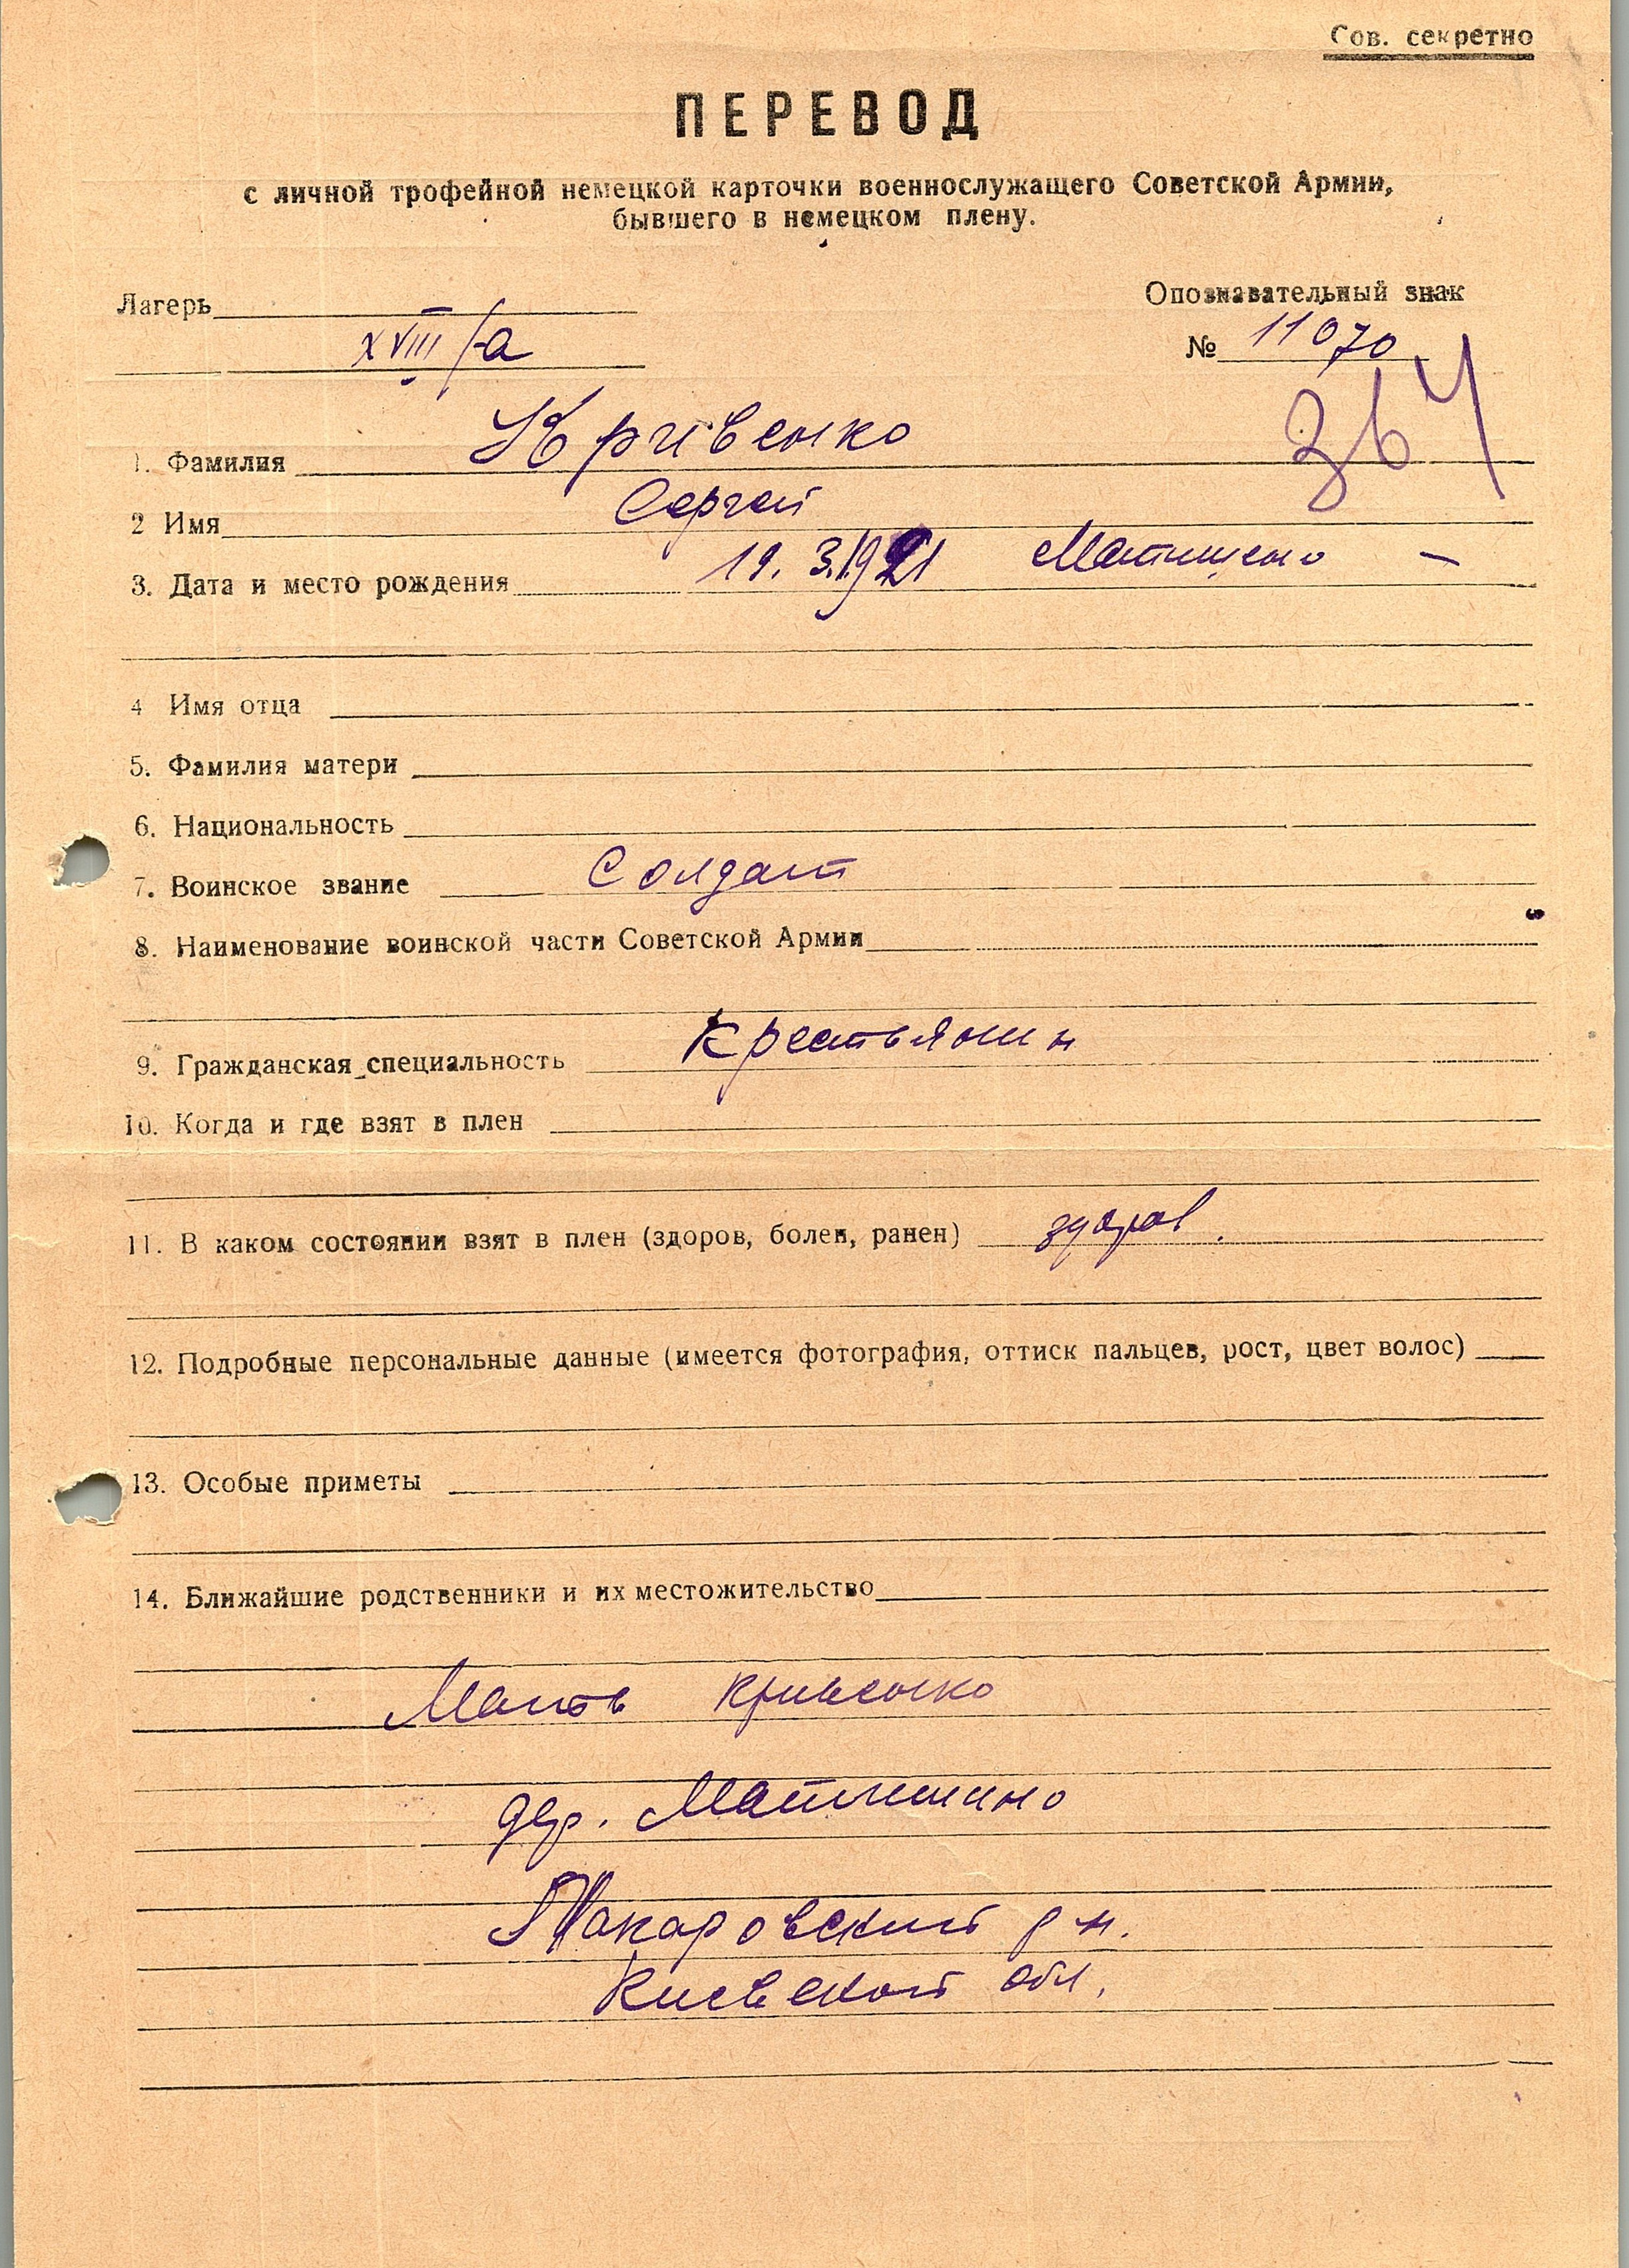 Сов. секретно
ПЕРЕВОД
с личной трофейной немецкой карточки военнослужащего Советской Армии,
бывшего в немецком плену.
Лагерь
XVIII/a
Опознавательный знак
№ 11070
1. Фамилия Кривенко
2 Имя Сергей
3. Дата и место рождения 19. 3.1921 Матищено —
4 Имя отца
5. Фамилия матери
6. Национальность
7. Воинское звание Солдат
8. Наименование воинской части Советской Армии
9. Гражданская специальность Крестьянин
10. Когда и где взят в плен
11. В каком состоянии взят в плен (здоров, болен, ранен) здоров.
12. Подробные персональные данные (имеется фотография, оттиск пальцев, рост, цвет волос)
13. Особые приметы
14. Ближайшие родственники и их местожительство
Мать Кривенко
дер. Матишино
Макаровский р-н.
Киевской обл.